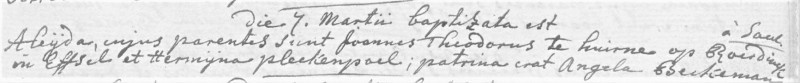 die 7. Martii baptizata est
Aleijda, cujus parentes sunt Joannes Theodorus te huirne op Roerdinck à Saul.
in Essel et Hermyna pleckenpoel; patrina erat Angela Beckeman